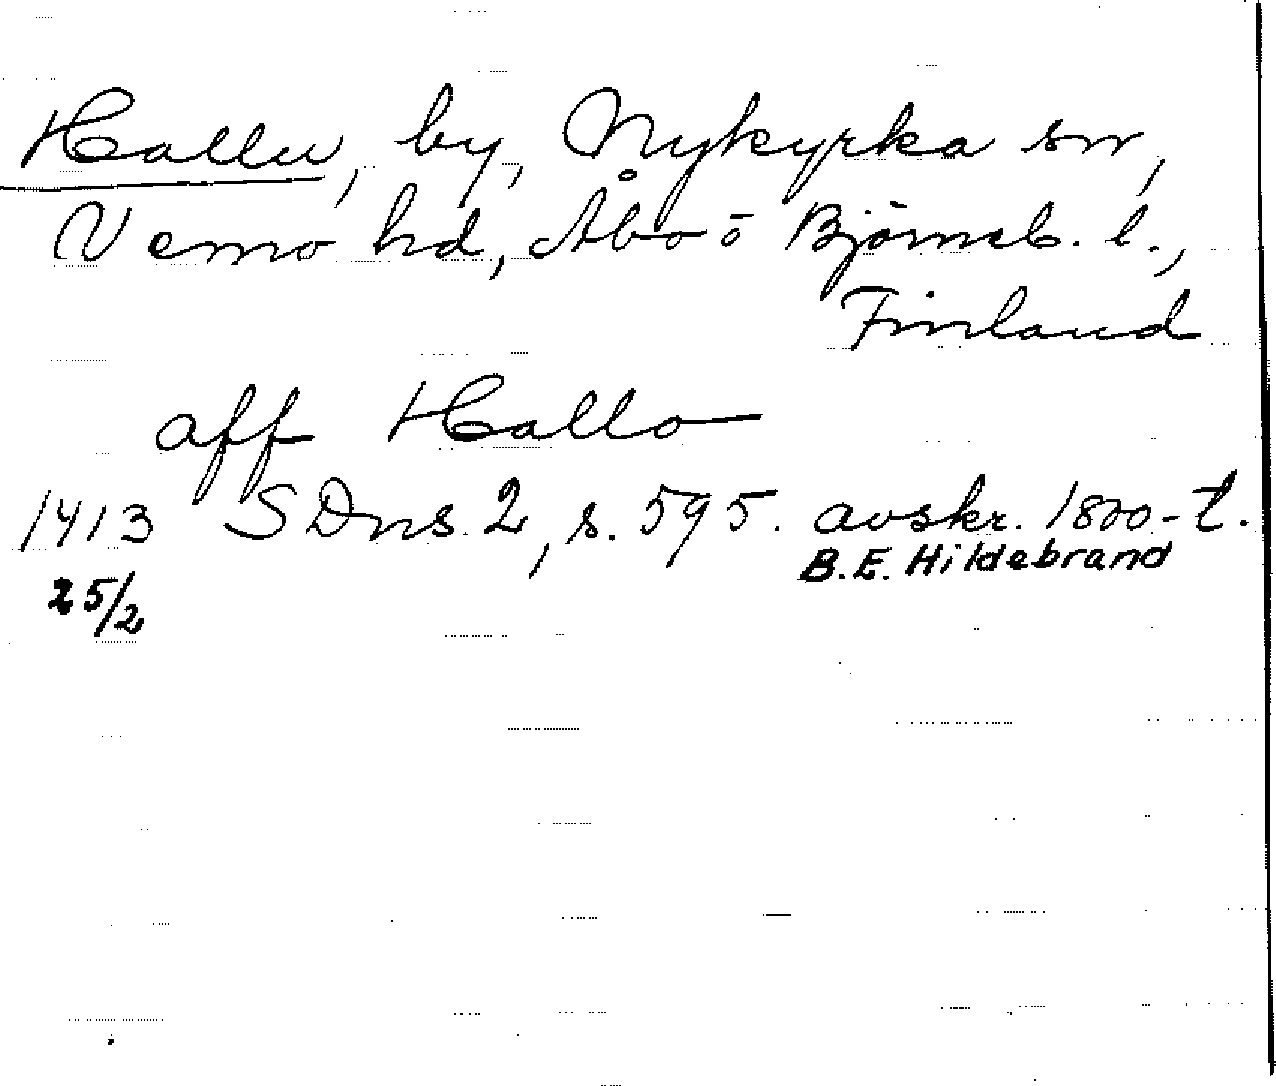 Hallu, by, Nykyrka sn,
Vemo hd, Åbo o Björneb. l.,
Finland
aff Hallo
1413 SDns. 2, s. 595. avskr. 1800-t.
25/2 B.E. Hildebrand